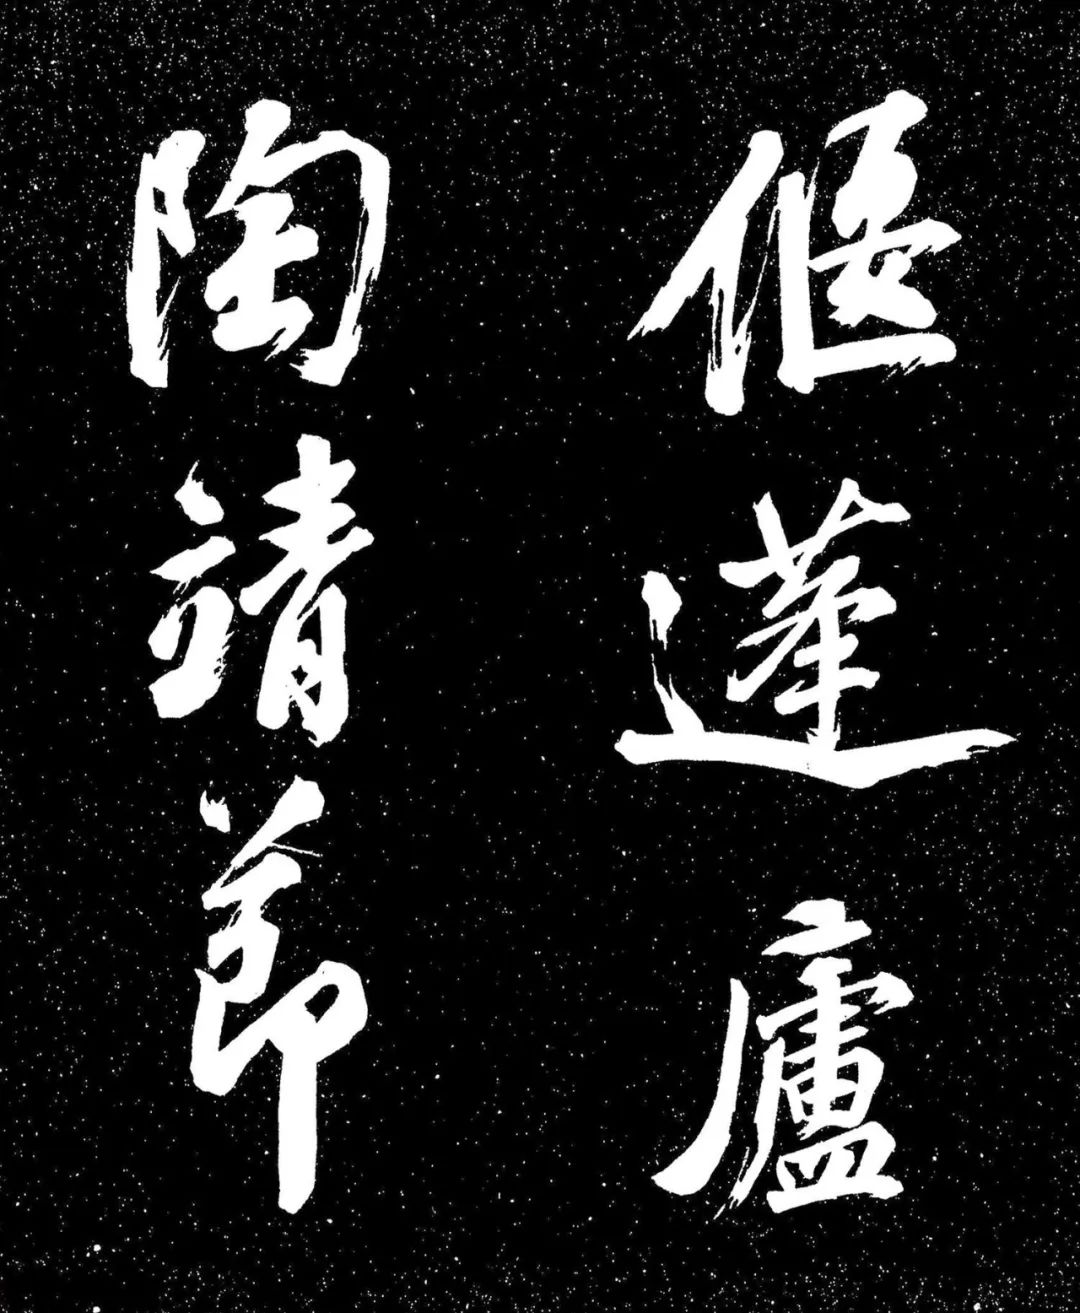 偃蓬廬
陶靖節